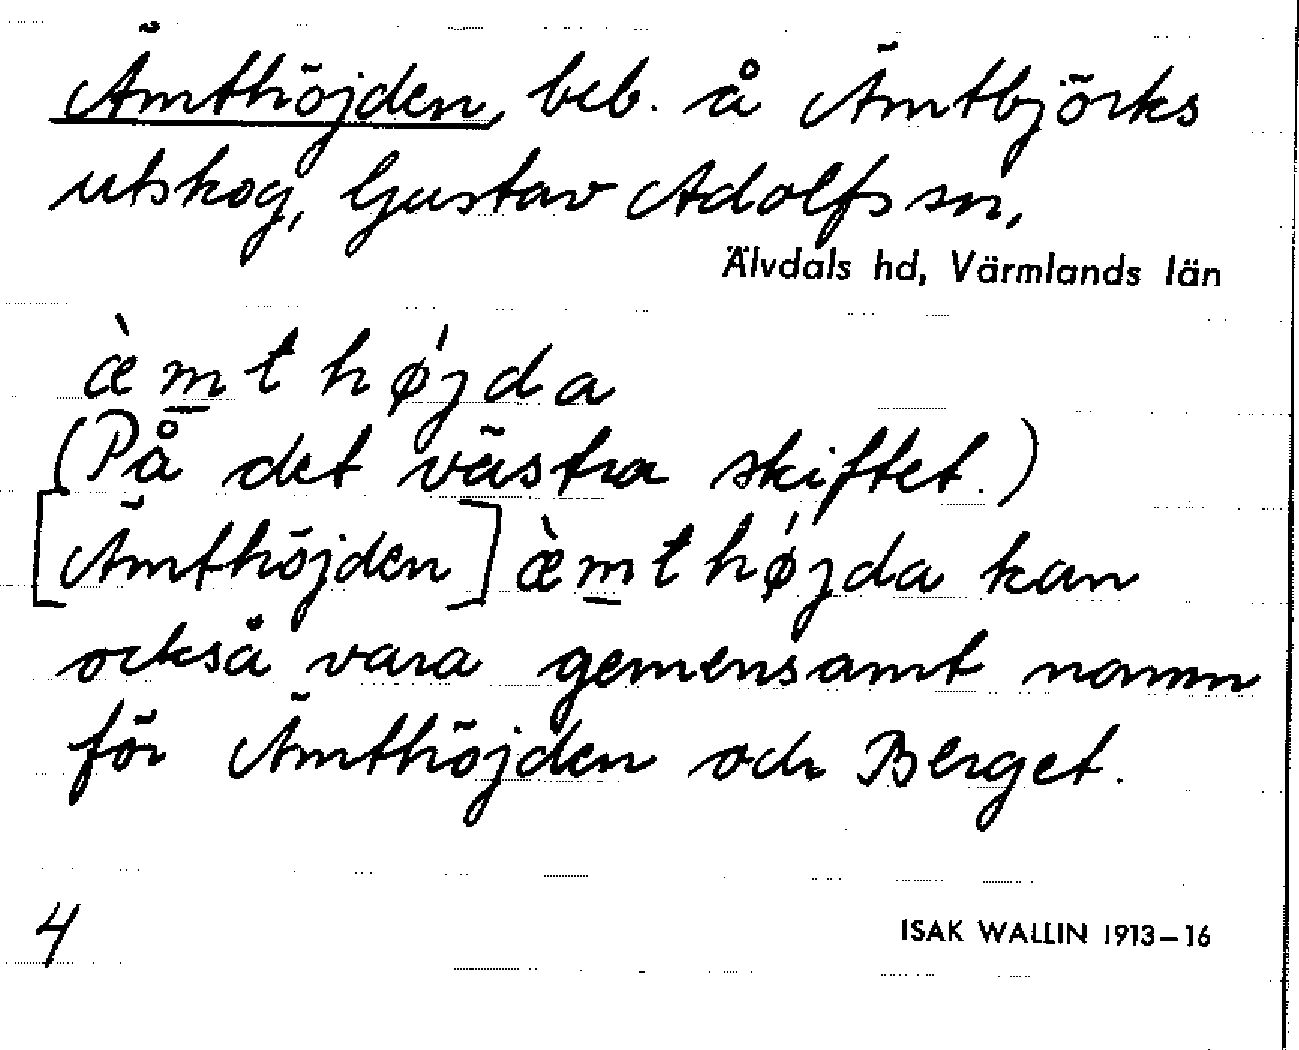 Ämthöjden, beb. å Ämtbjörks
utskog, Gustav Adolfs sn,
Älvdals hd, Värmlands län
æ̀m̲thǿjda
(På det västra skiftet.)
[Ämthöjden] æ̀m̲thǿjda kan
också vara gemensamt namn
för Ämthöjden och Berget.
4
ISAK WALLIN 1913–16